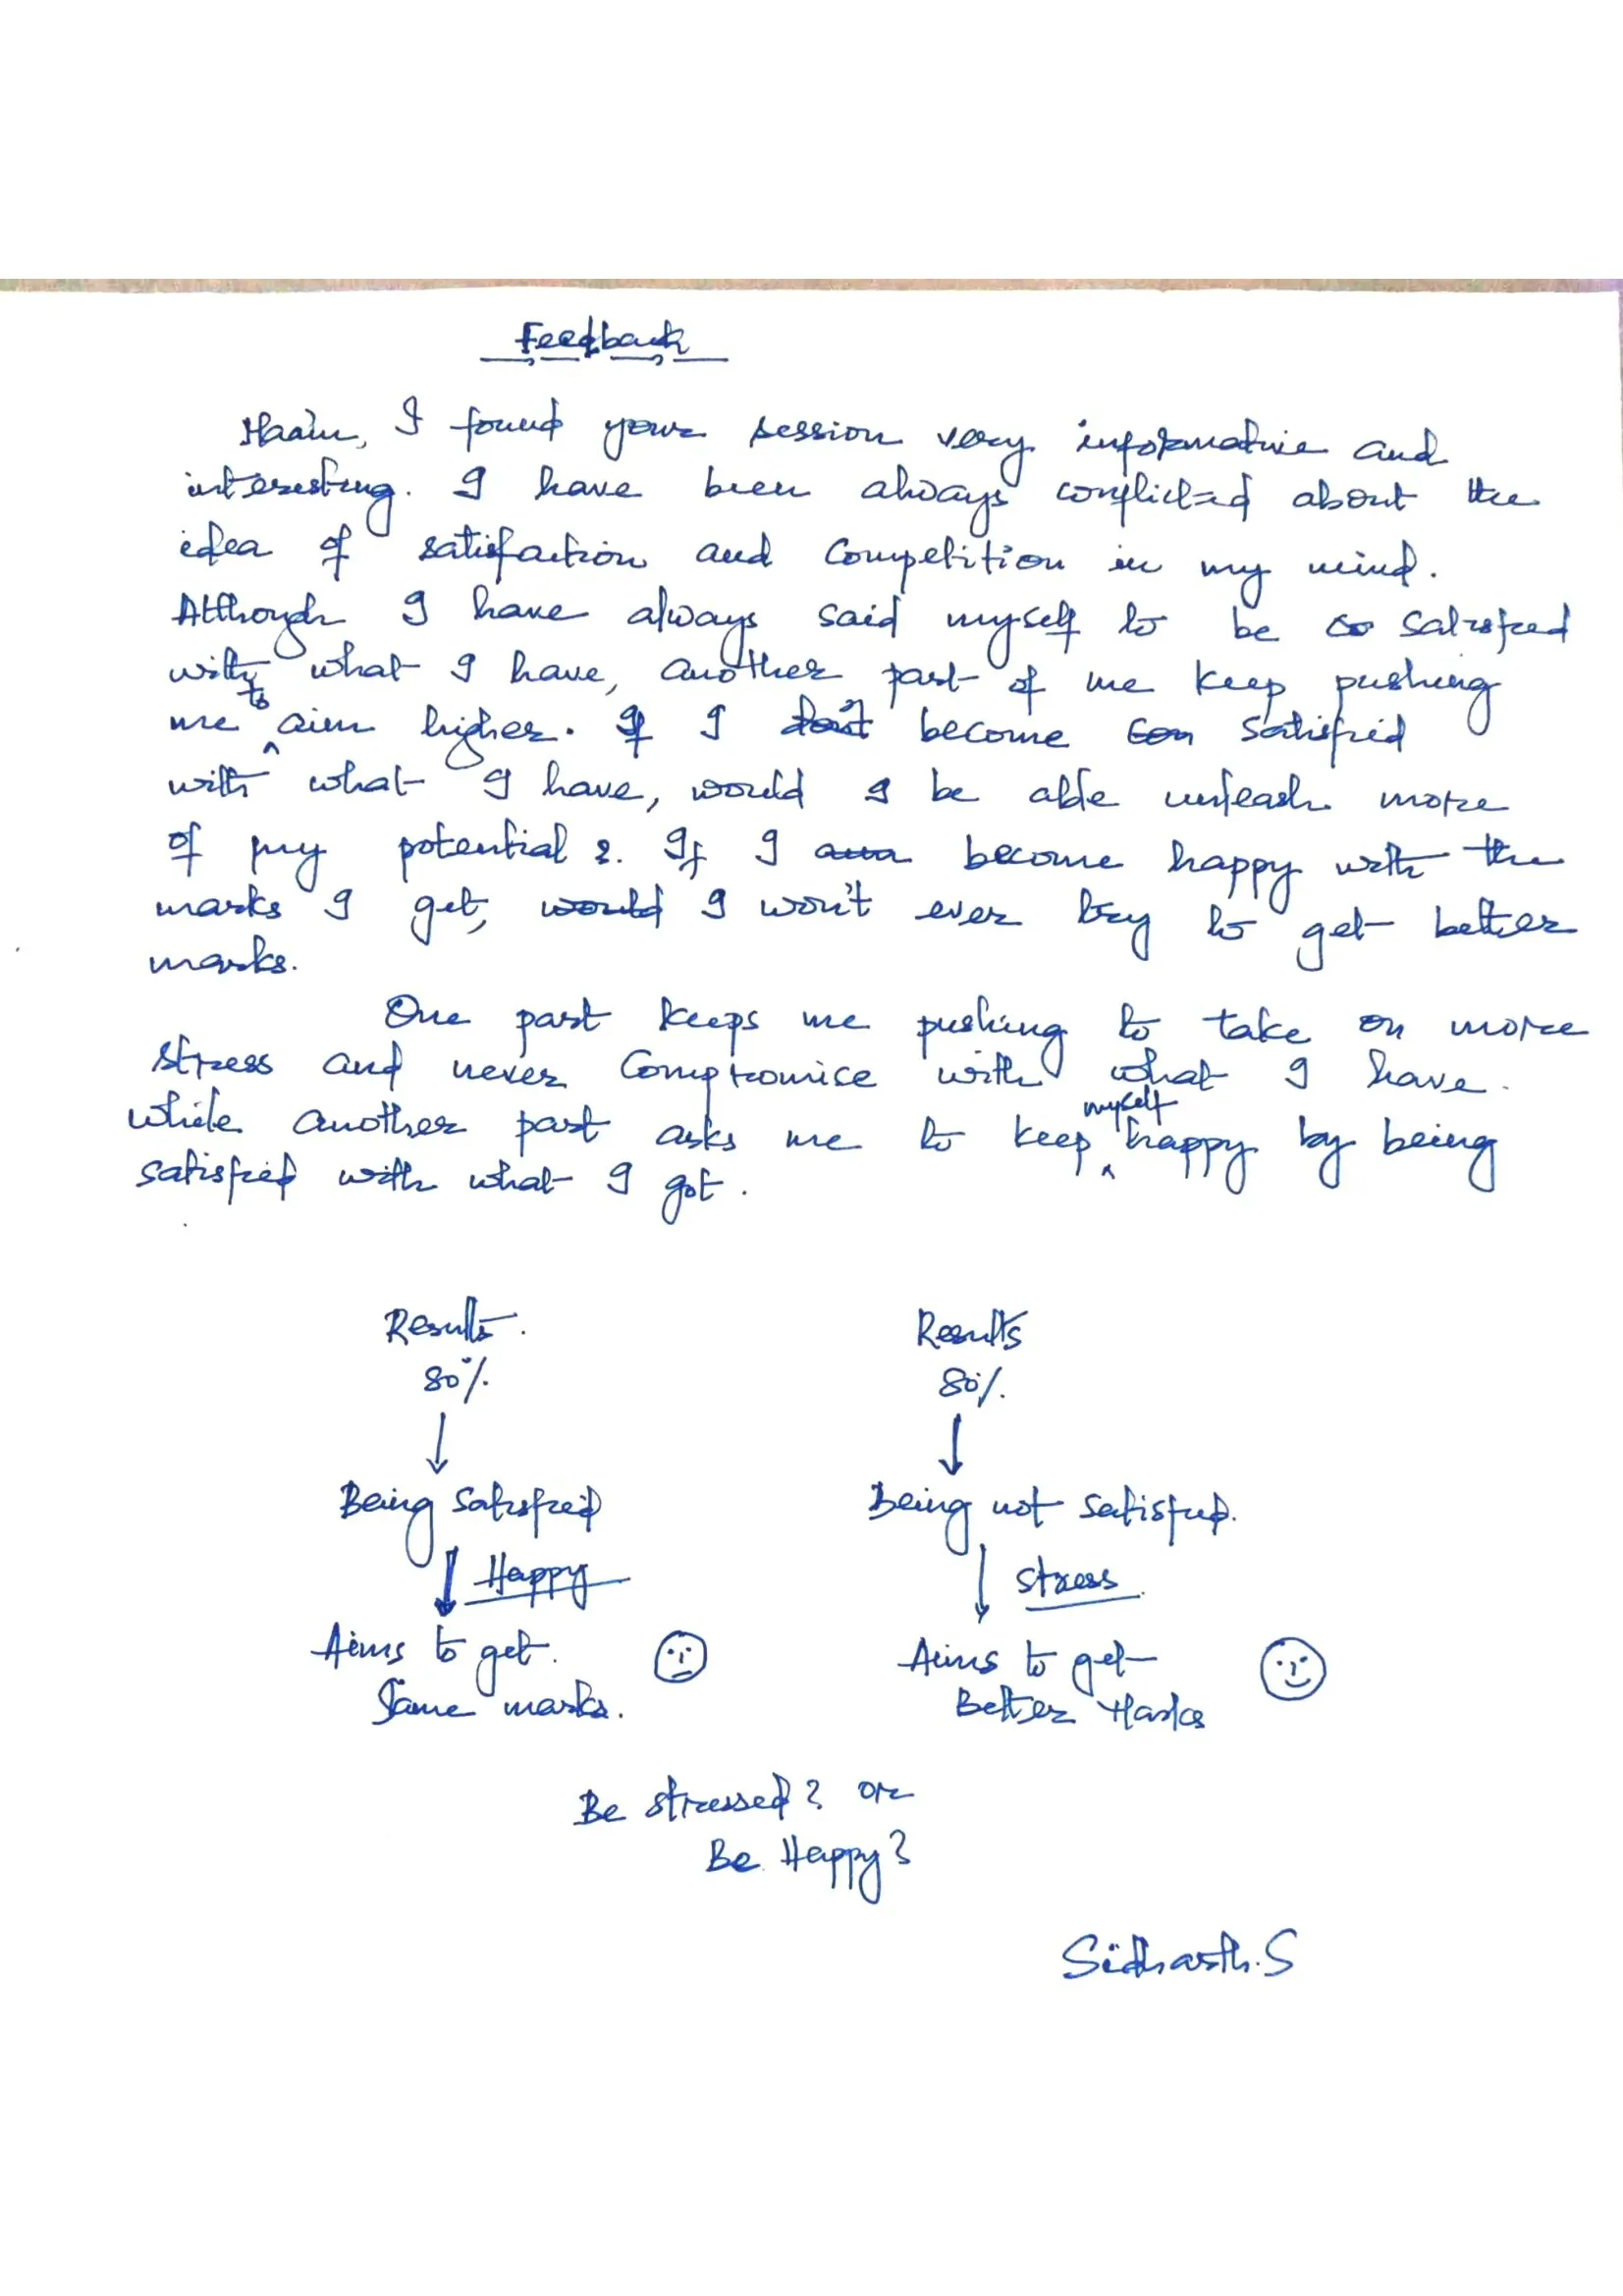 Feedback
Maam, I found your session very informative and
interesting. I have been always conflicted about the
idea of satisfaction and Competition in my mind.
Although I have always said myself to be so satisfied
with what I have, another part of me keep pushing
me to aim higher. If I don't become con satisfied
with what I have, would I be able unleash more
of my potential ?. If I am become happy with the
marks I get, would I won't ever try to get better
marks.
One part keeps me pushing to take on more
stress and never Compromise with what I have.
while another part asks me to keep myself happy by being
satisfied with what I got.
Results. Results
80% 80%.
Being Satisfied Being not satisfied.
Happy stress
Aims to get. Aims to get
Same marks. Better Marks
Be stressed? or
Be Happy?
Sidharth.S